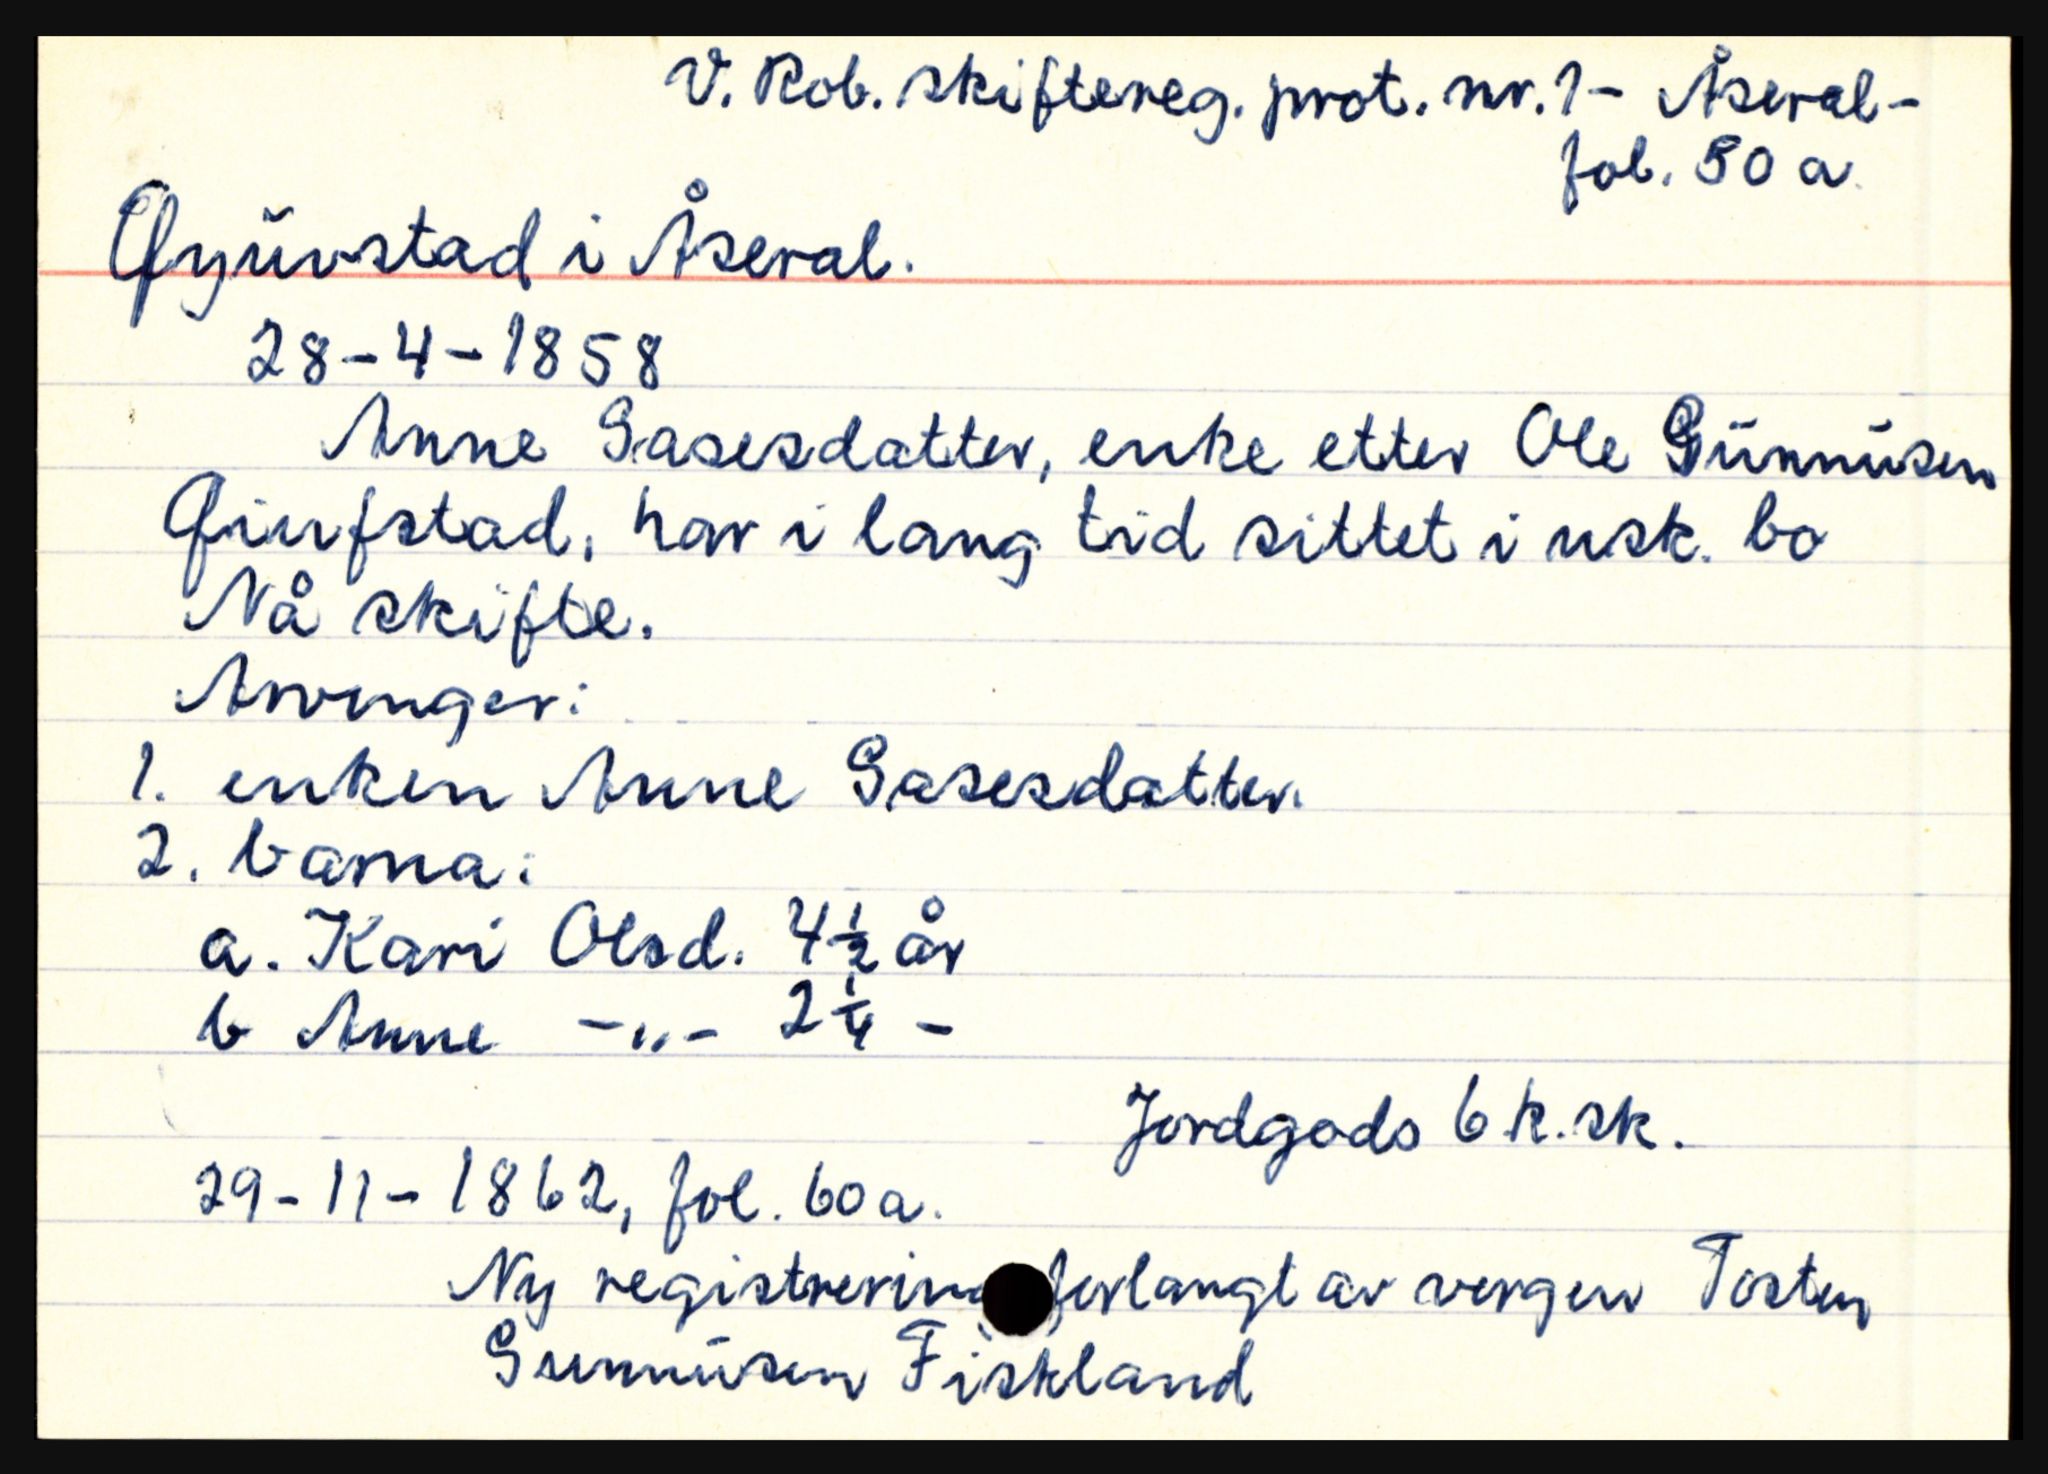 V. Rob. skiftereg. prot. nr. 1 - Åseral -
fol. 50 a.
Qyŭvstad i Åseral.
28-4-1858
Anne Gasesdatter, enke etter Ole Gŭnnŭsen
Qiufstad, har i lang tid sittet i usk. bo
Nå skifte.
Arvinger:
1. enken Anne Gasesdatter.
2. barna:
a. Kari Olsd. 4½ år
b Anne -„- 2¼ -
Jordgods 6 k. sk.
29-11-1862, fol. 60a.
Ny registrering forlangt av vergen Tosten
Gunnŭsen Fiskland